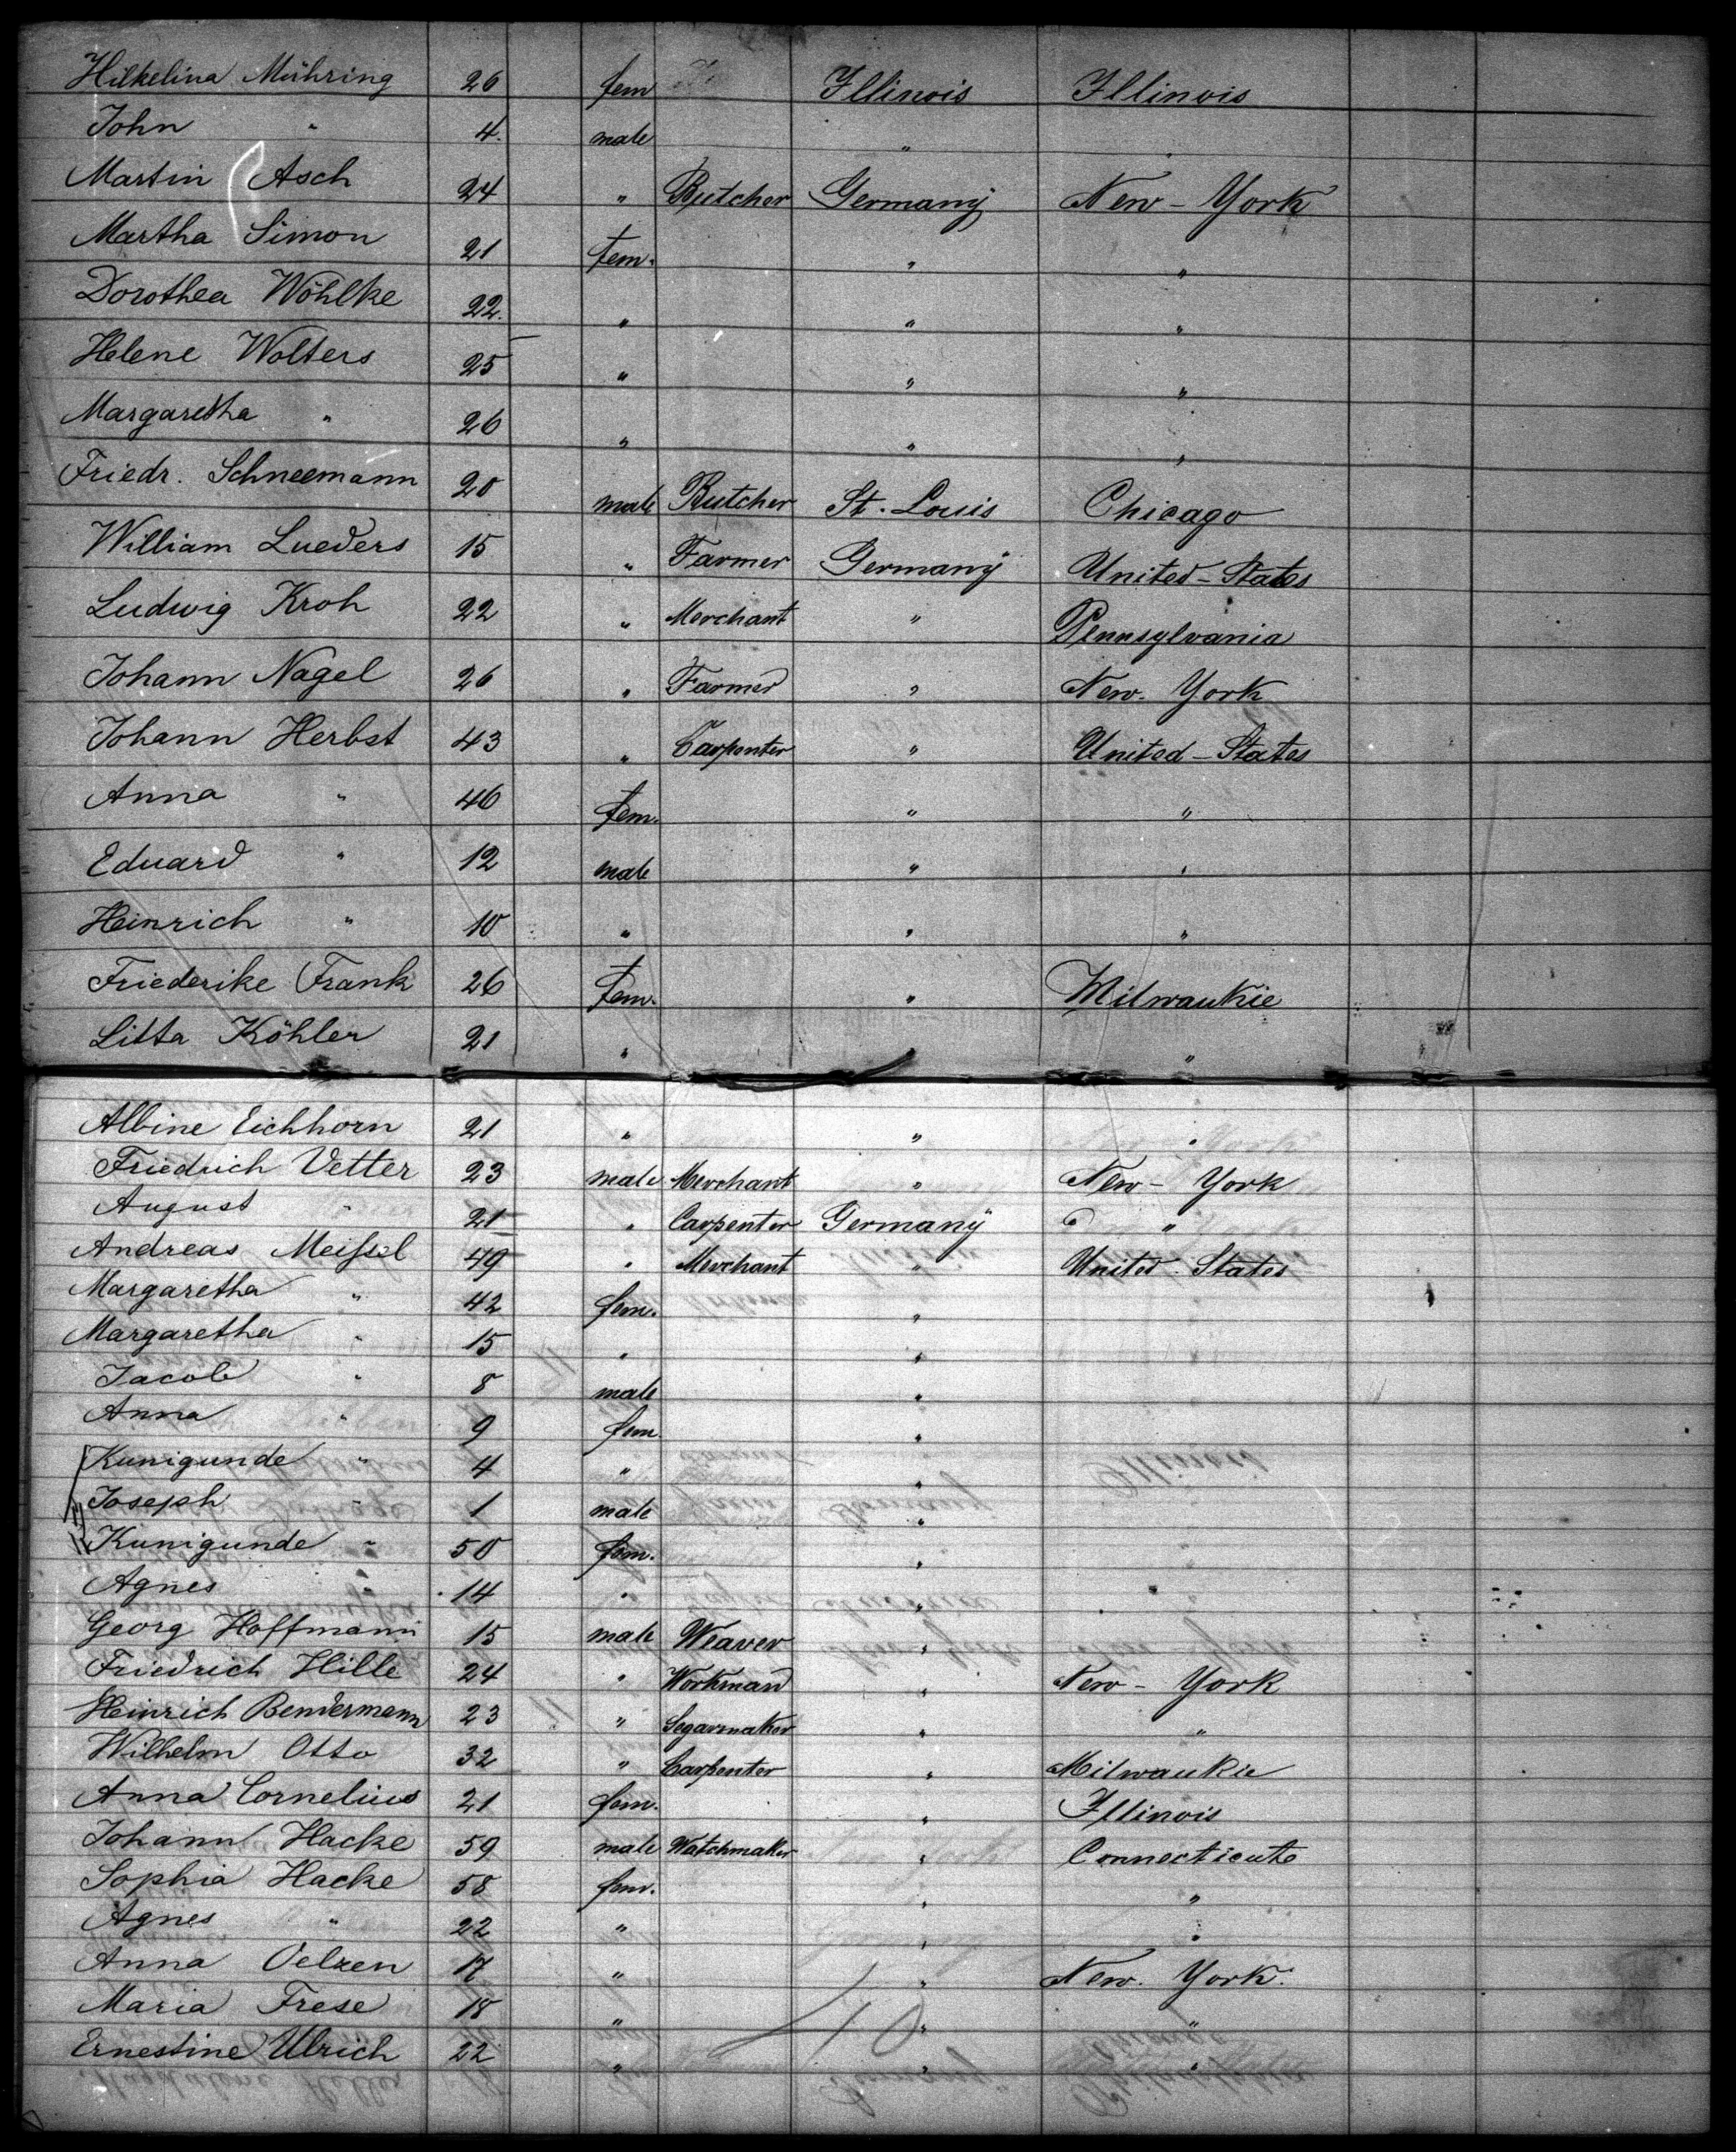 Hilkelina Mühring 26 fem Illinois Illinois
John " 4. male " "
Martin Asch 24 " Butcher Germany New-York
Martha Simon 21 fem. " "
Dorothea Wöhlke 22. " " "
Helene Wolters 25 " " "
Margaretha " 26 " " "
Friedr. Schneemann 20 male Butcher St. Louis Chicago
William Lueders 15 " Farmer Germany United-States
Ludwig Kroh 22 " Merchant " Pennsylvania
Johann Nagel 26 " Farmer " New. York
Johann Herbst 43 " Carpenter " United-States
Anna " 46 fem. " "
Eduard " 12 male " "
Heinrich " 10 " " "
Friederike Frank 26 fem. " Milwaukie
Litta Köhler 21 " "
Albine Eichhorn 21 " " "
Friedrich Vetter 23 male Merchant " New-York
August " 21 " Carpenter Germany "
Andreas Meißel 49 " Merchant " United. States
Margaretha " 42 fem. "
Margaretha " 15 " "
Jacob " 8 male "
Anna " 9 fem. "
Kunigunde " 4 " "
Joseph " 1 male "
Kunigunde " 50 fem. "
Agnes " 14 " "
Georg Hoffmann 15 male Weaver "
Friedrich Hille 24 " Workman " New-York
Heinrich Bendermann 23 " Segarmaker " "
Wilhelm Otto 32 " Carpenter " Milwaukie
Anna Cornelius 21 fem. " Illinois
Johann Hacke 59 male Watchmaker " Connecticute
Sophia Hacke 58 fem. " "
Agnes " 22 " " "
Anna Oelzen 17 " " New. York.
Maria Frese 18 " " "
Ernestine Ulrich 22 " " "
40